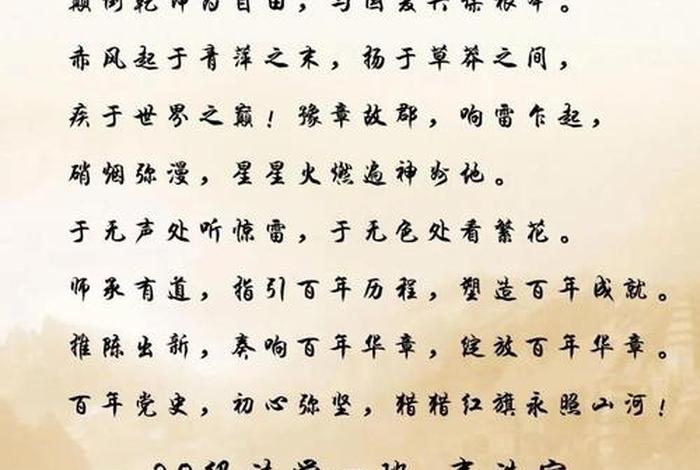 颠倒乾坤为自由，与国复兴架根本。
赤风起于青萍之末，扬于草莽之间，
疾于世界之巅！豫章故郡，响雷乍起，
硝烟弥漫，星星火燃遍神州地。
于无声处听惊雷，于无色处看繁花。
师承有道，指引百年历程，塑造百年成就。
推陈出新，奏响百年华章，绽放百年华章。
百年党史，初心弥坚，猎猎红旗永照山河！